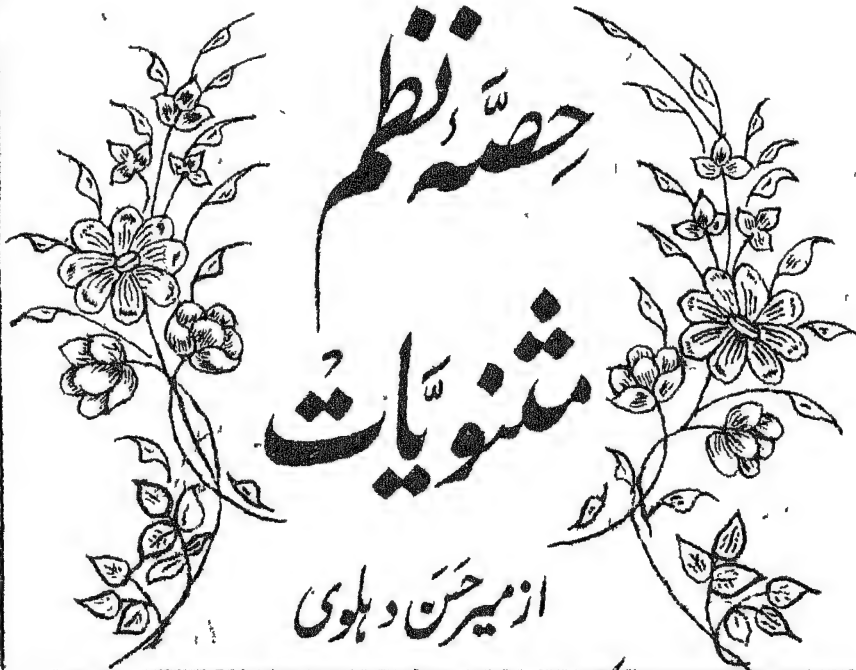 حِصّۂ نظم
مثنویّات
از میر حَسَن دہلوی